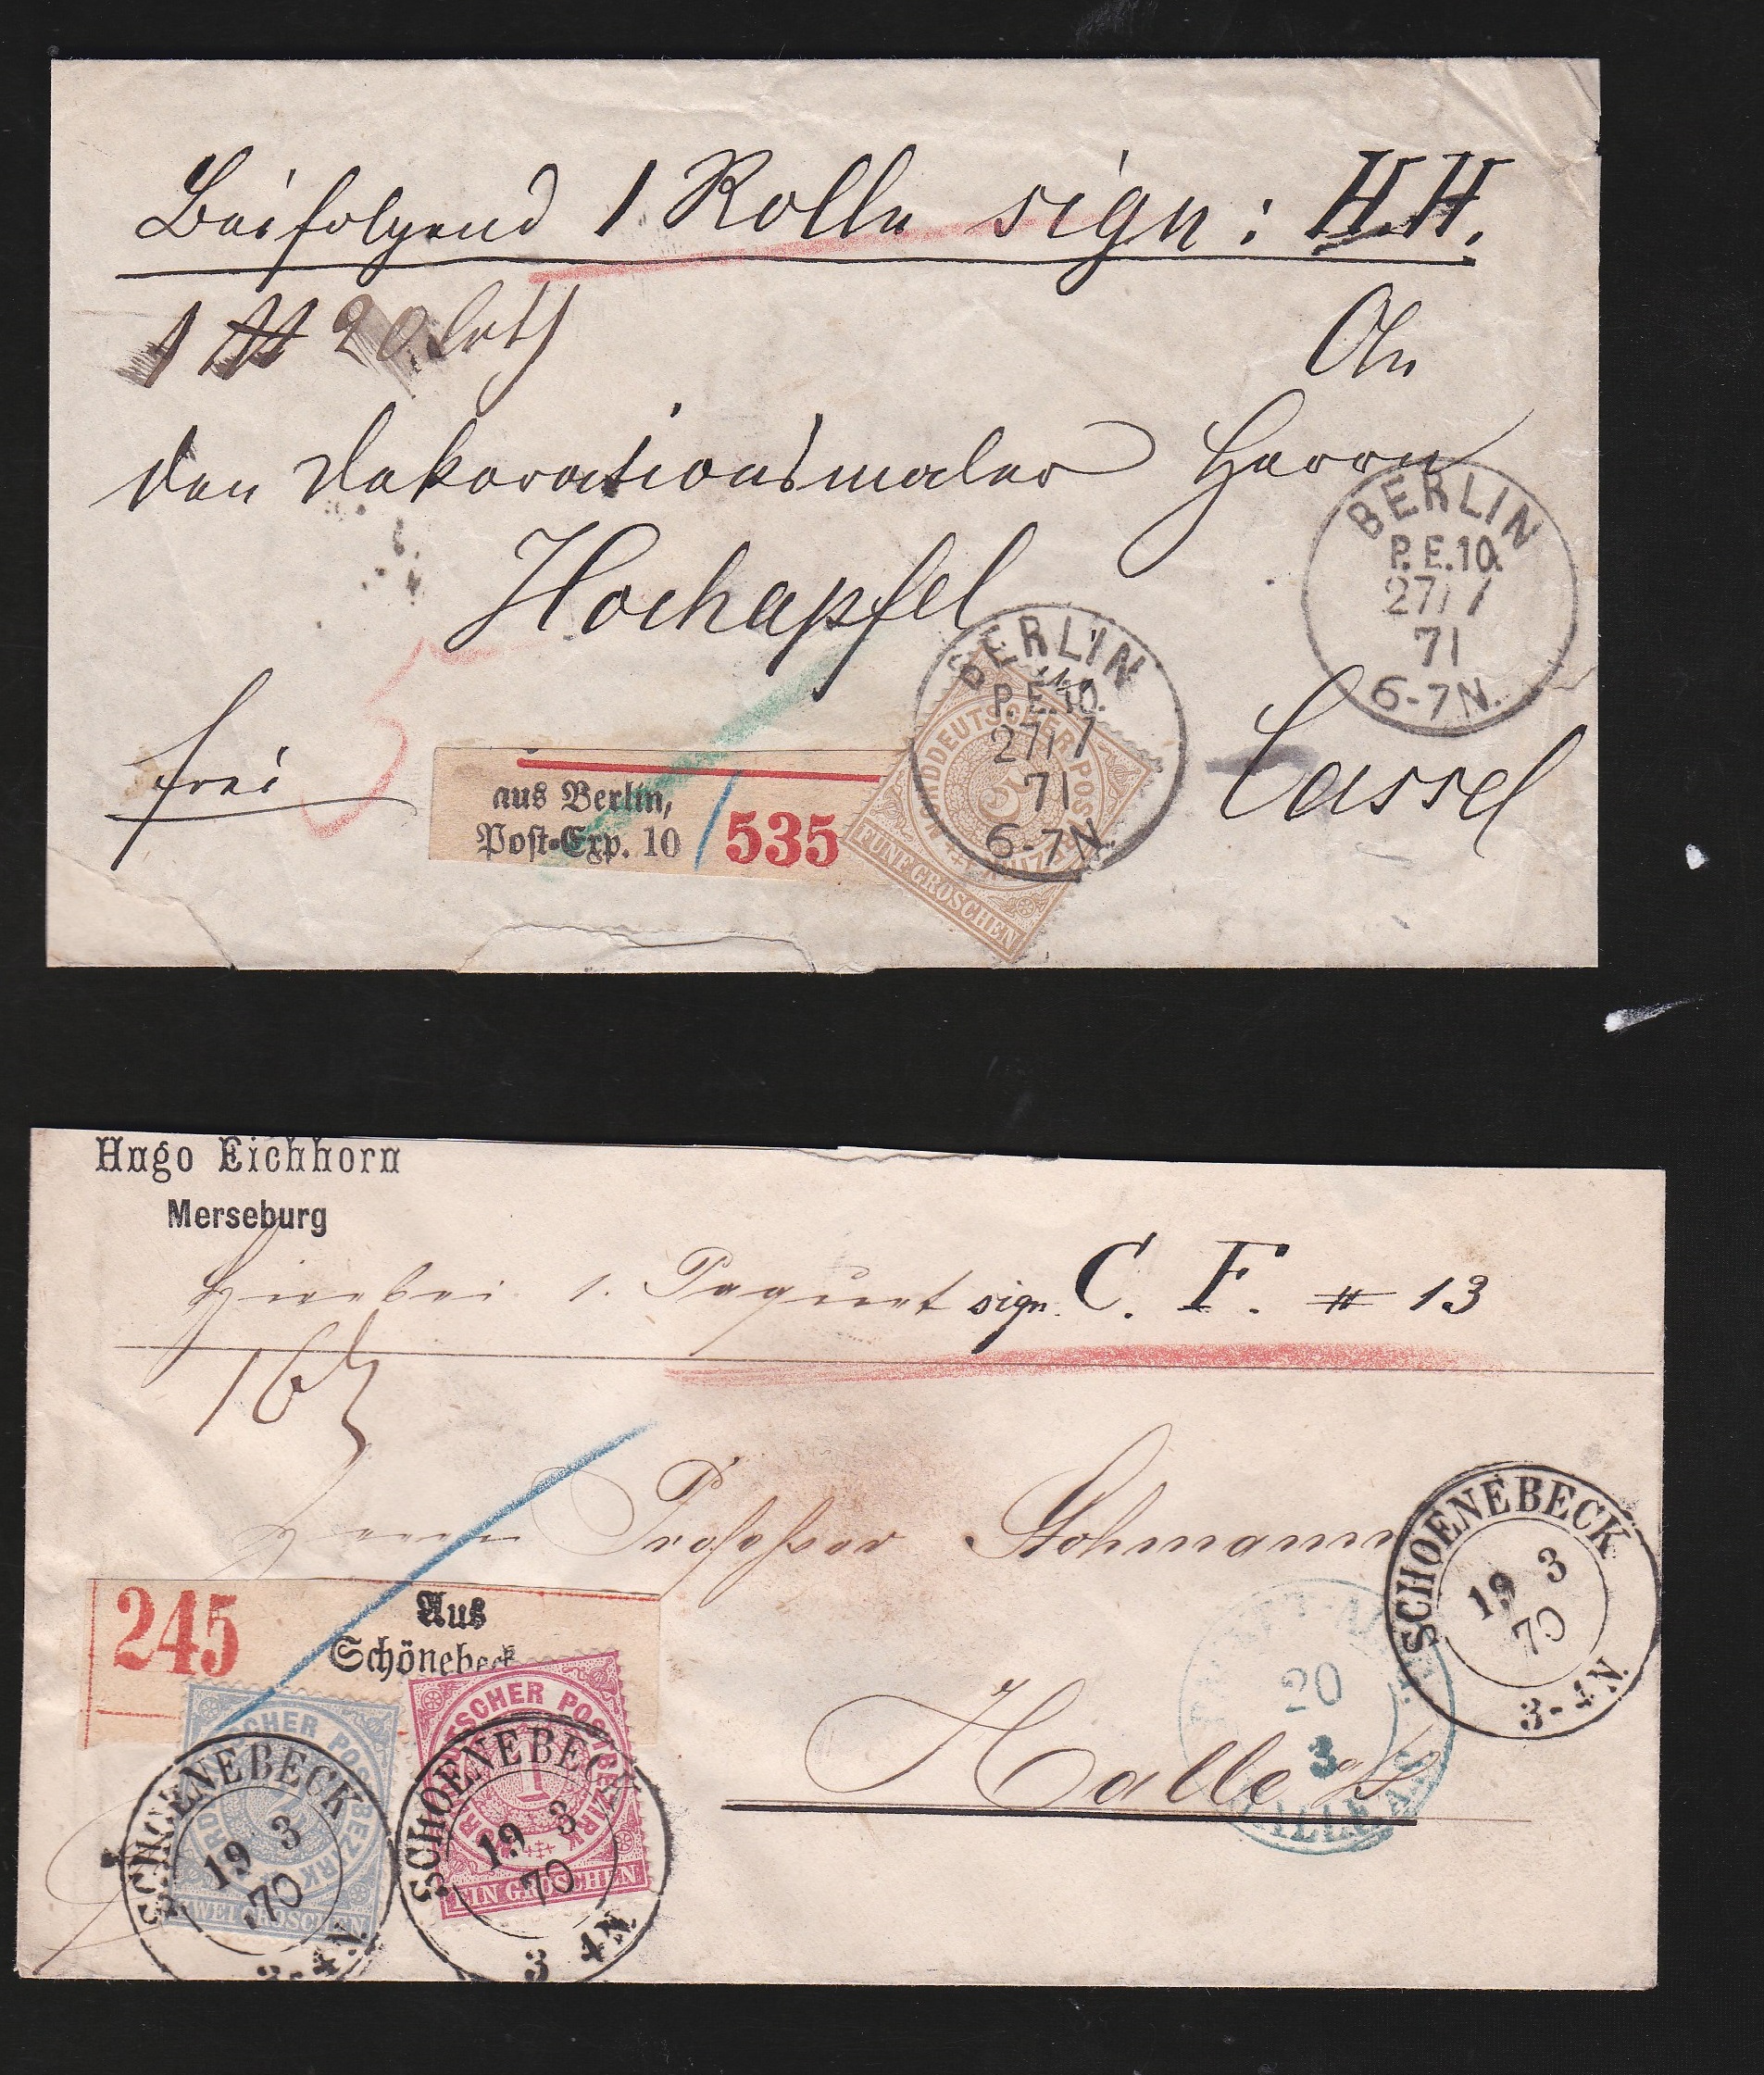 Beifolgend 1 Rolle sign: H.H.
1 ℔ 20 Lth
An
den Dekorationsmaler Herrn
Hochapfel
frei
Cassel
5
aus Berlin,
Post-Exp. 10
535
BERLIN
P.E.10.
27/7
71
6-7N.
NORDDEUTSCHER POSTBEZIRK
5
FÜNF GROSCHEN
BERLIN
P.E.10.
27/7
71
6-7N.
Hugo Eichhorn
Merseburg
Hierbei 1. Paquet sign. C. F. # 13
Herrn Professor Stohmann
Halle a/S
245
Aus
Schönebeck
NORDDEUTSCHER POSTBEZIRK
ZWEI GROSCHEN
NORDDEUTSCHER POSTBEZIRK
1
EIN GROSCHEN
SCHOENEBECK
19 3
70
3-4N.
SCHOENEBECK
19 3
70
3-4N.
SCHOENEBECK
19 3
70
3-4N.
20
3
HALLE A.S.